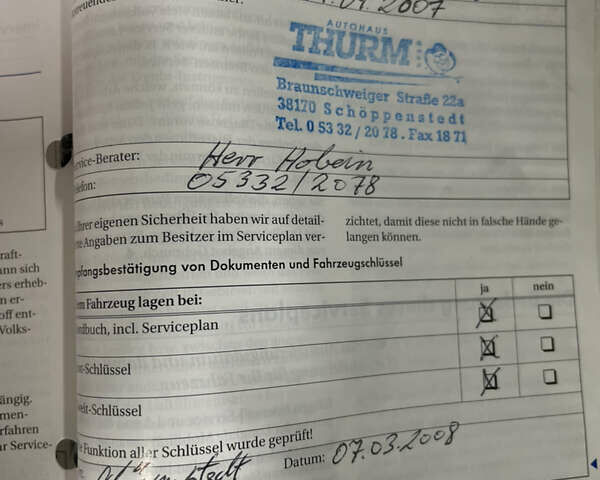 2007
AUTOHAUS
THURM
Braunschweiger Straße 22a
38170 Schöppenstedt
Tel. 0 53 32 / 20 78 . Fax 18 71
ervice-Berater: Herr Hobein
elefon: 05332/2078
Ihrer eigenen Sicherheit haben wir auf detail-
Angaben zum Besitzer im Serviceplan ver-
zichtet, damit diese nicht in falsche Hände ge-
langen können.
pfangsbestätigung von Dokumenten und Fahrzeugschlüssel
m Fahrzeug lagen bei: ja nein
ndbuch, incl. Serviceplan
-Schlüssel
-Schlüssel
Funktion aller Schlüssel wurde geprüft!
Datum: 07.03.2008
raft-
ann sich
ers erheb-
n er-
off ent-
Volks-
ängig.
men-
erfahren
r Service-